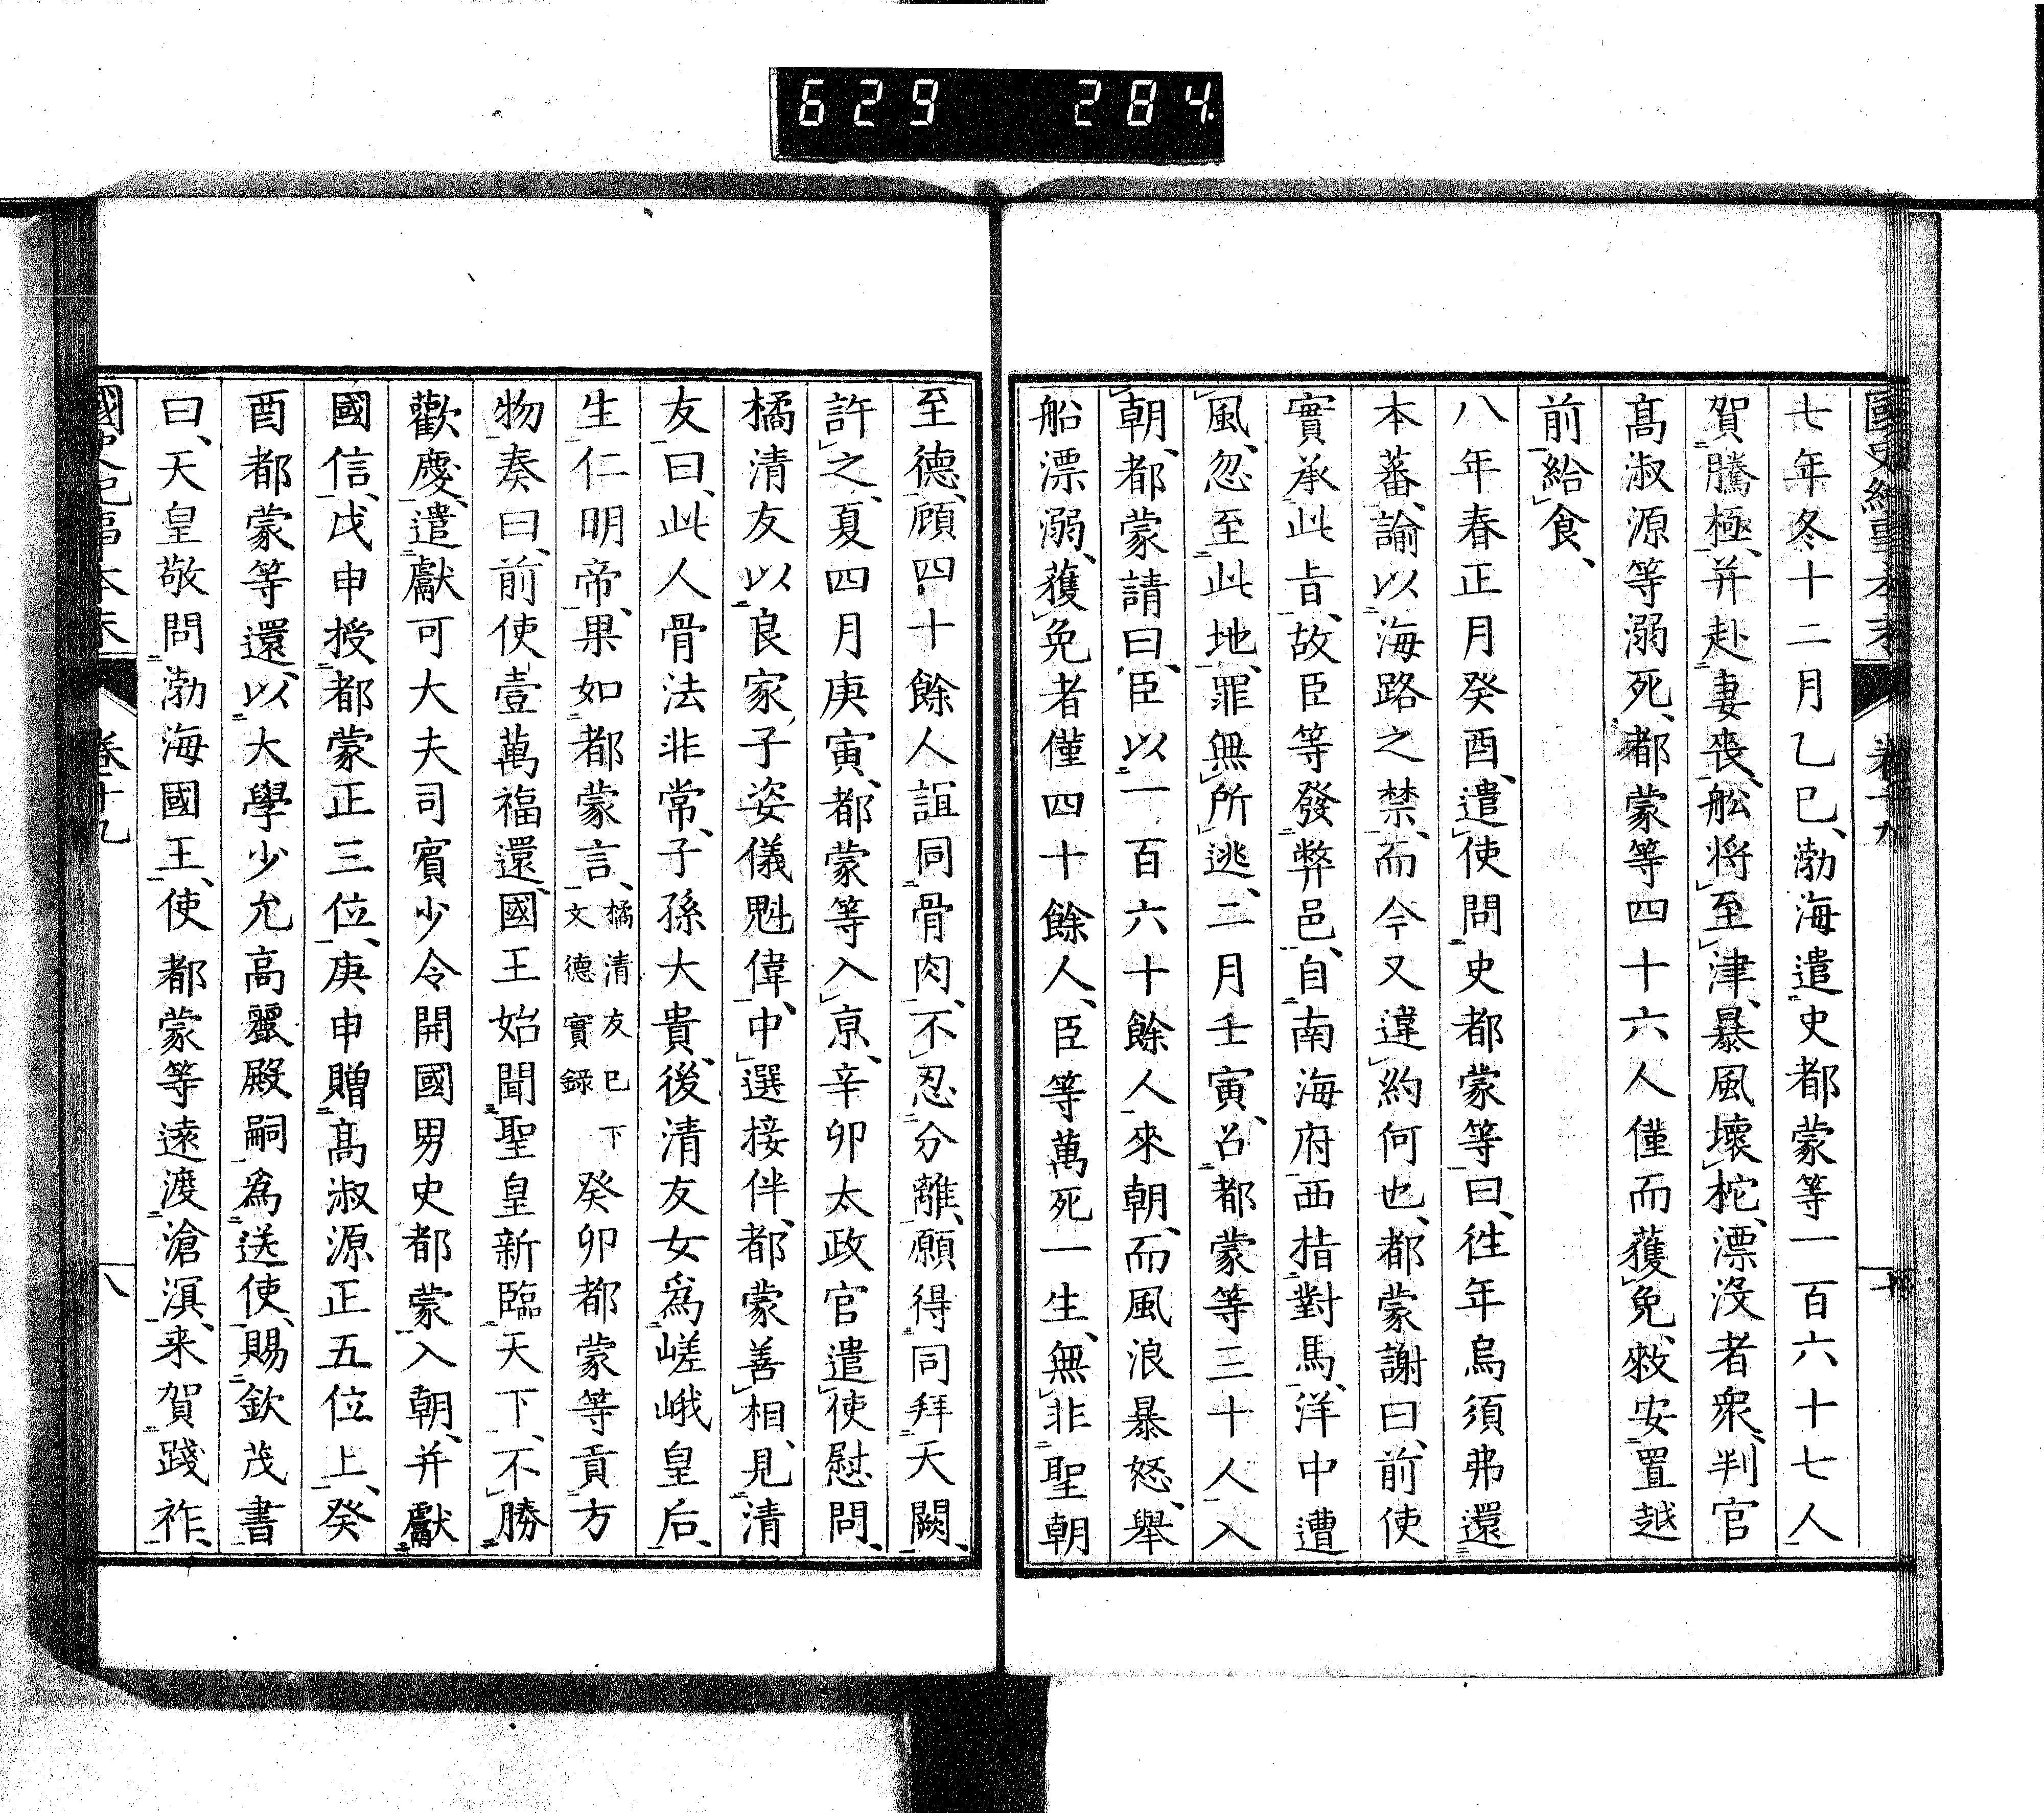 629 284
國史紀事本末 卷十九
七年冬十二月乙巳、渤海遣史都蒙等一百六十七人
賀騰極、并赴妻喪、舩將至津、暴風壞柁、漂沒者衆、判官
高淑源等溺死、都蒙等四十六人僅而獲免、敕安置越
前給食、
八年春正月癸酉、遣使問史都蒙等曰、往年烏須弗還
本蕃、諭以海路之禁、而今又違約何也、都蒙謝曰、前使
實承此旨、故臣等發弊邑、自南海府西指對馬、洋中遭
風、忽至此地、罪無所逃、二月壬寅、召都蒙等三十人入
朝、都蒙請曰、臣以一百六十餘人來朝、而風浪暴怒、舉
船漂溺、獲免者僅四十餘人、臣等萬死一生、無非聖朝
至德、顧四十餘人誼同骨肉、不忍分離、願得同拜天闕、
許之、夏四月庚寅、都蒙等入京、辛卯太政官遣使慰問、
橘清友以良家子姿儀魁偉、中選接伴、都蒙善相、見清
友曰、此人骨法非常、子孫大貴、後清友女爲嵯峨皇后、
生仁明帝、果如都蒙言、橘清友已下文德實録 癸卯都蒙等貢方
物奏曰、前使壹萬福還、國王始聞聖皇新臨天下、不勝
歡慶、遣獻可大夫司賓少令開國男史都蒙入朝、并獻
國信、戊申授都蒙正三位、庚申贈高淑源正五位上、癸
酉都蒙等還、以大學少允高麗殿嗣爲送使、賜欽茂書
曰、天皇敬問渤海國王、使都蒙等遠渡滄溟、来賀踐祚、
國史紀事本末 卷十九 八